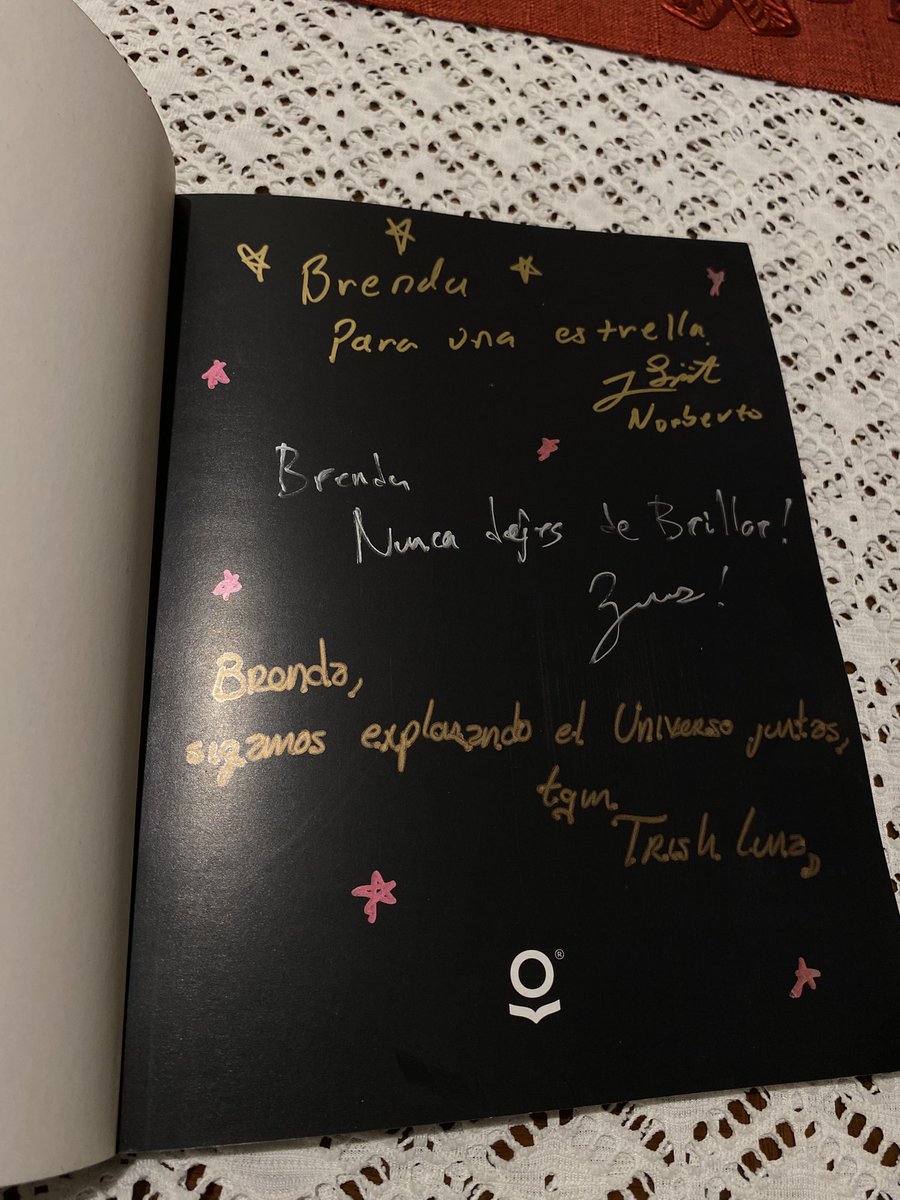 Brenda
Para una estrella
Norberto
Brenda
Nunca dejes de Brillar!
Brenda,
sigamos explorando el Universo juntas,
tqm.
Trish Luna,
®